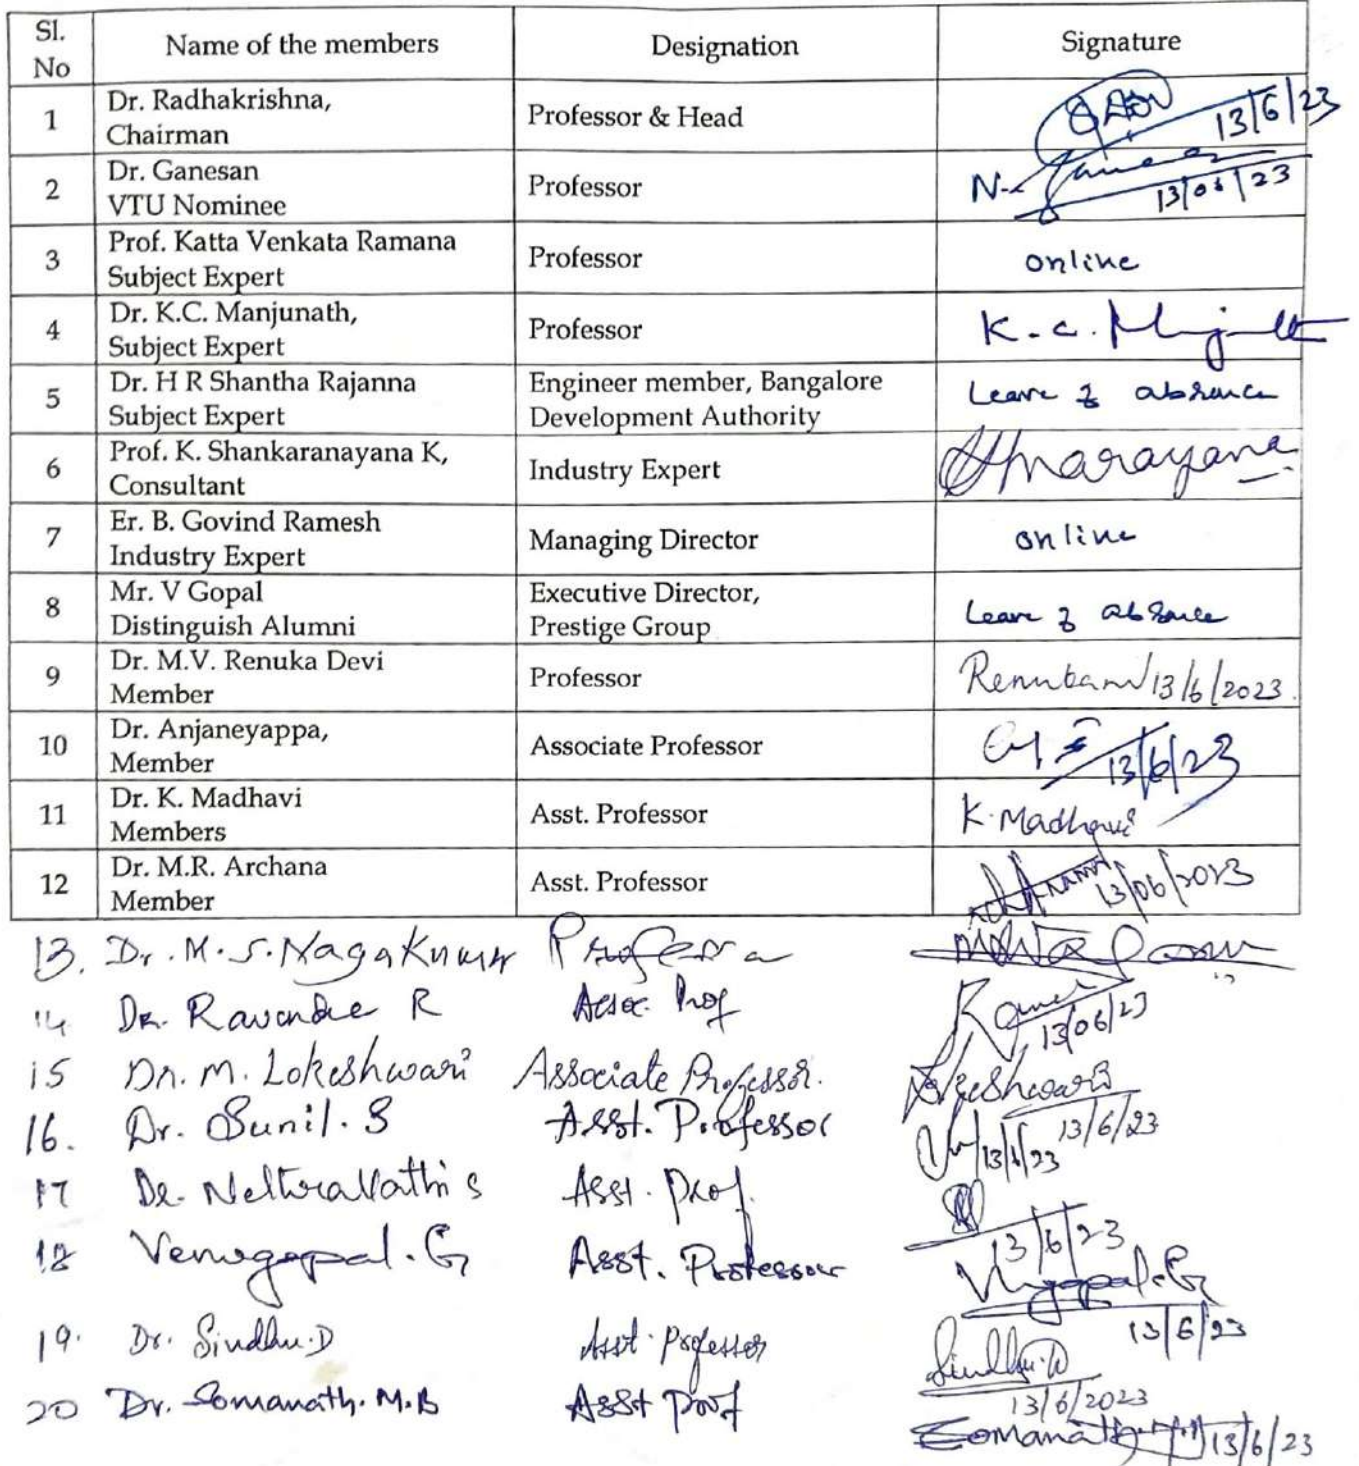 Sl. No Name of the members Designation Signature
1 Dr. Radhakrishna, Chairman Professor & Head 13/6/23
2 Dr. Ganesan VTU Nominee Professor N. 13/06/23
3 Prof. Katta Venkata Ramana Subject Expert Professor online
4 Dr. K.C. Manjunath, Subject Expert Professor K.C.
5 Dr. H R Shantha Rajanna Subject Expert Engineer member, Bangalore Development Authority Leave of absence
6 Prof. K. Shankaranayana K, Consultant Industry Expert
7 Er. B. Govind Ramesh Industry Expert Managing Director online
8 Mr. V Gopal Distinguish Alumni Executive Director, Prestige Group Leave of absence
9 Dr. M.V. Renuka Devi Member Professor 13/6/2023
10 Dr. Anjaneyappa, Member Associate Professor 13/6/23
11 Dr. K. Madhavi Members Asst. Professor K. Madhavi
12 Dr. M.R. Archana Member Asst. Professor 13/06/2023
13. Dr. M.S. Nagakumar Professor
14 Dr. Ravindra R Assoc. Prof 13/06/23
15 Dr. M. Lokeshwari Associate Professor. Lokeshwari 13/6/23
16. Dr. Sunil. S Asst. Professor 13/6/23
17 Dr. Nethravathi S Asst. Prof. 13/6/23
18 Venugopal. G Asst. Professor Venugopal. G 13/6/23
19. Dr. Sindhu. D Asst. Professor Sindhu. D 13/6/2023
20 Dr. Somanath. M. B Asst Prof Somanath 13/6/23